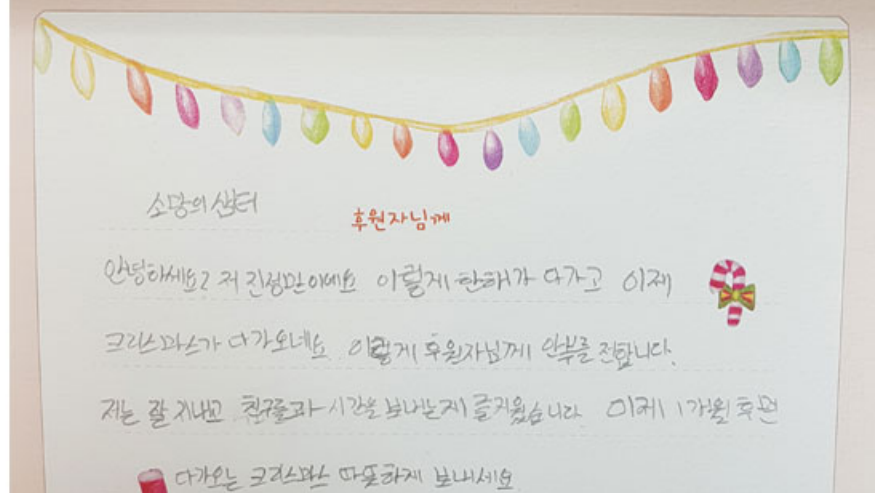 소망의 샘터
후원자님께
안녕하세요? 저 진정만이에요 이렇게 한해가 다가고 이제
크리스마스가 다가오네요. 이렇게 후원자님께 안부를 전합니다.
저는 잘 지내고 친구들과 시간을 보내는게 즐거웠습니다. 이제 1개월 후면
다가오는 크리스마스 따뜻하게 보내세요